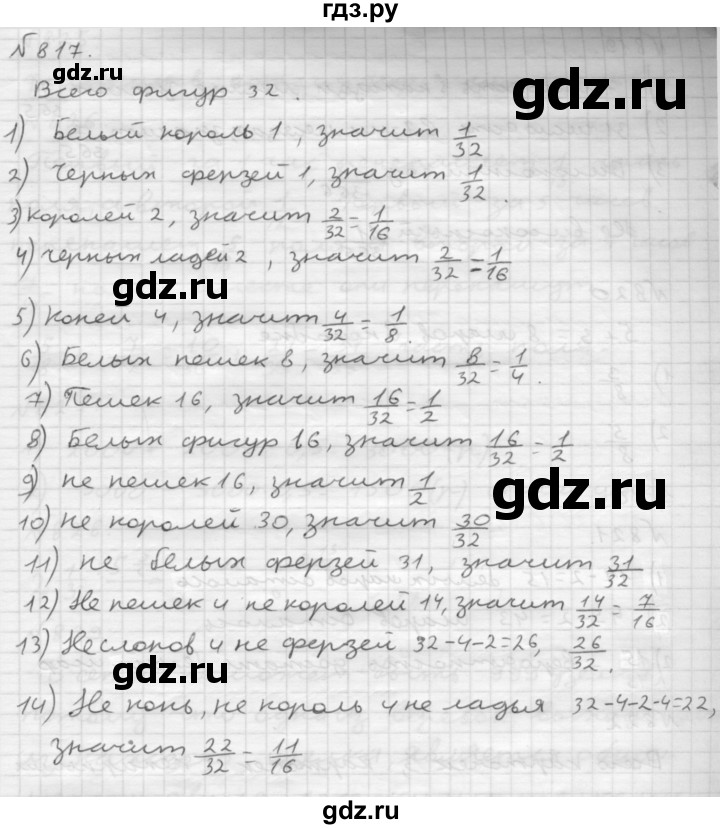 гдз.ру
№817.
gdz.ru
Всего фигур 32.
gdz.ru
1) Белый король 1, значит 1/32
2) Черных ферзей 1, значит 1/32.
gdz.ru
3) королей 2, значит 2/32=1/16
4) черных ладей 2, значит 2/32=1/16
gdz.ru
5) Коней 4, значит 4/32=1/8.
6) Белых пешек 8, значит 8/32=1/4.
gdz.ru
7) Пешек 16, значит 16/32=1/2
8) Белых фигур 16, значит 16/32=1/2
gdz.ru
9) не пешек 16, значит 1/2
gdz.ru
10) не королей 30, значит 30/32
11) не белых ферзей 31, значит 31/32
12) Не пешек и не королей 14, значит 14/32=7/16
13) Не слонов и не ферзей 32-4-2=26, 26/32.
gdz.ru
14) Не конь, не король и не ладья 32-4-2-4=22,
значит 22/32=11/16
gdz.ru
gdz.ru